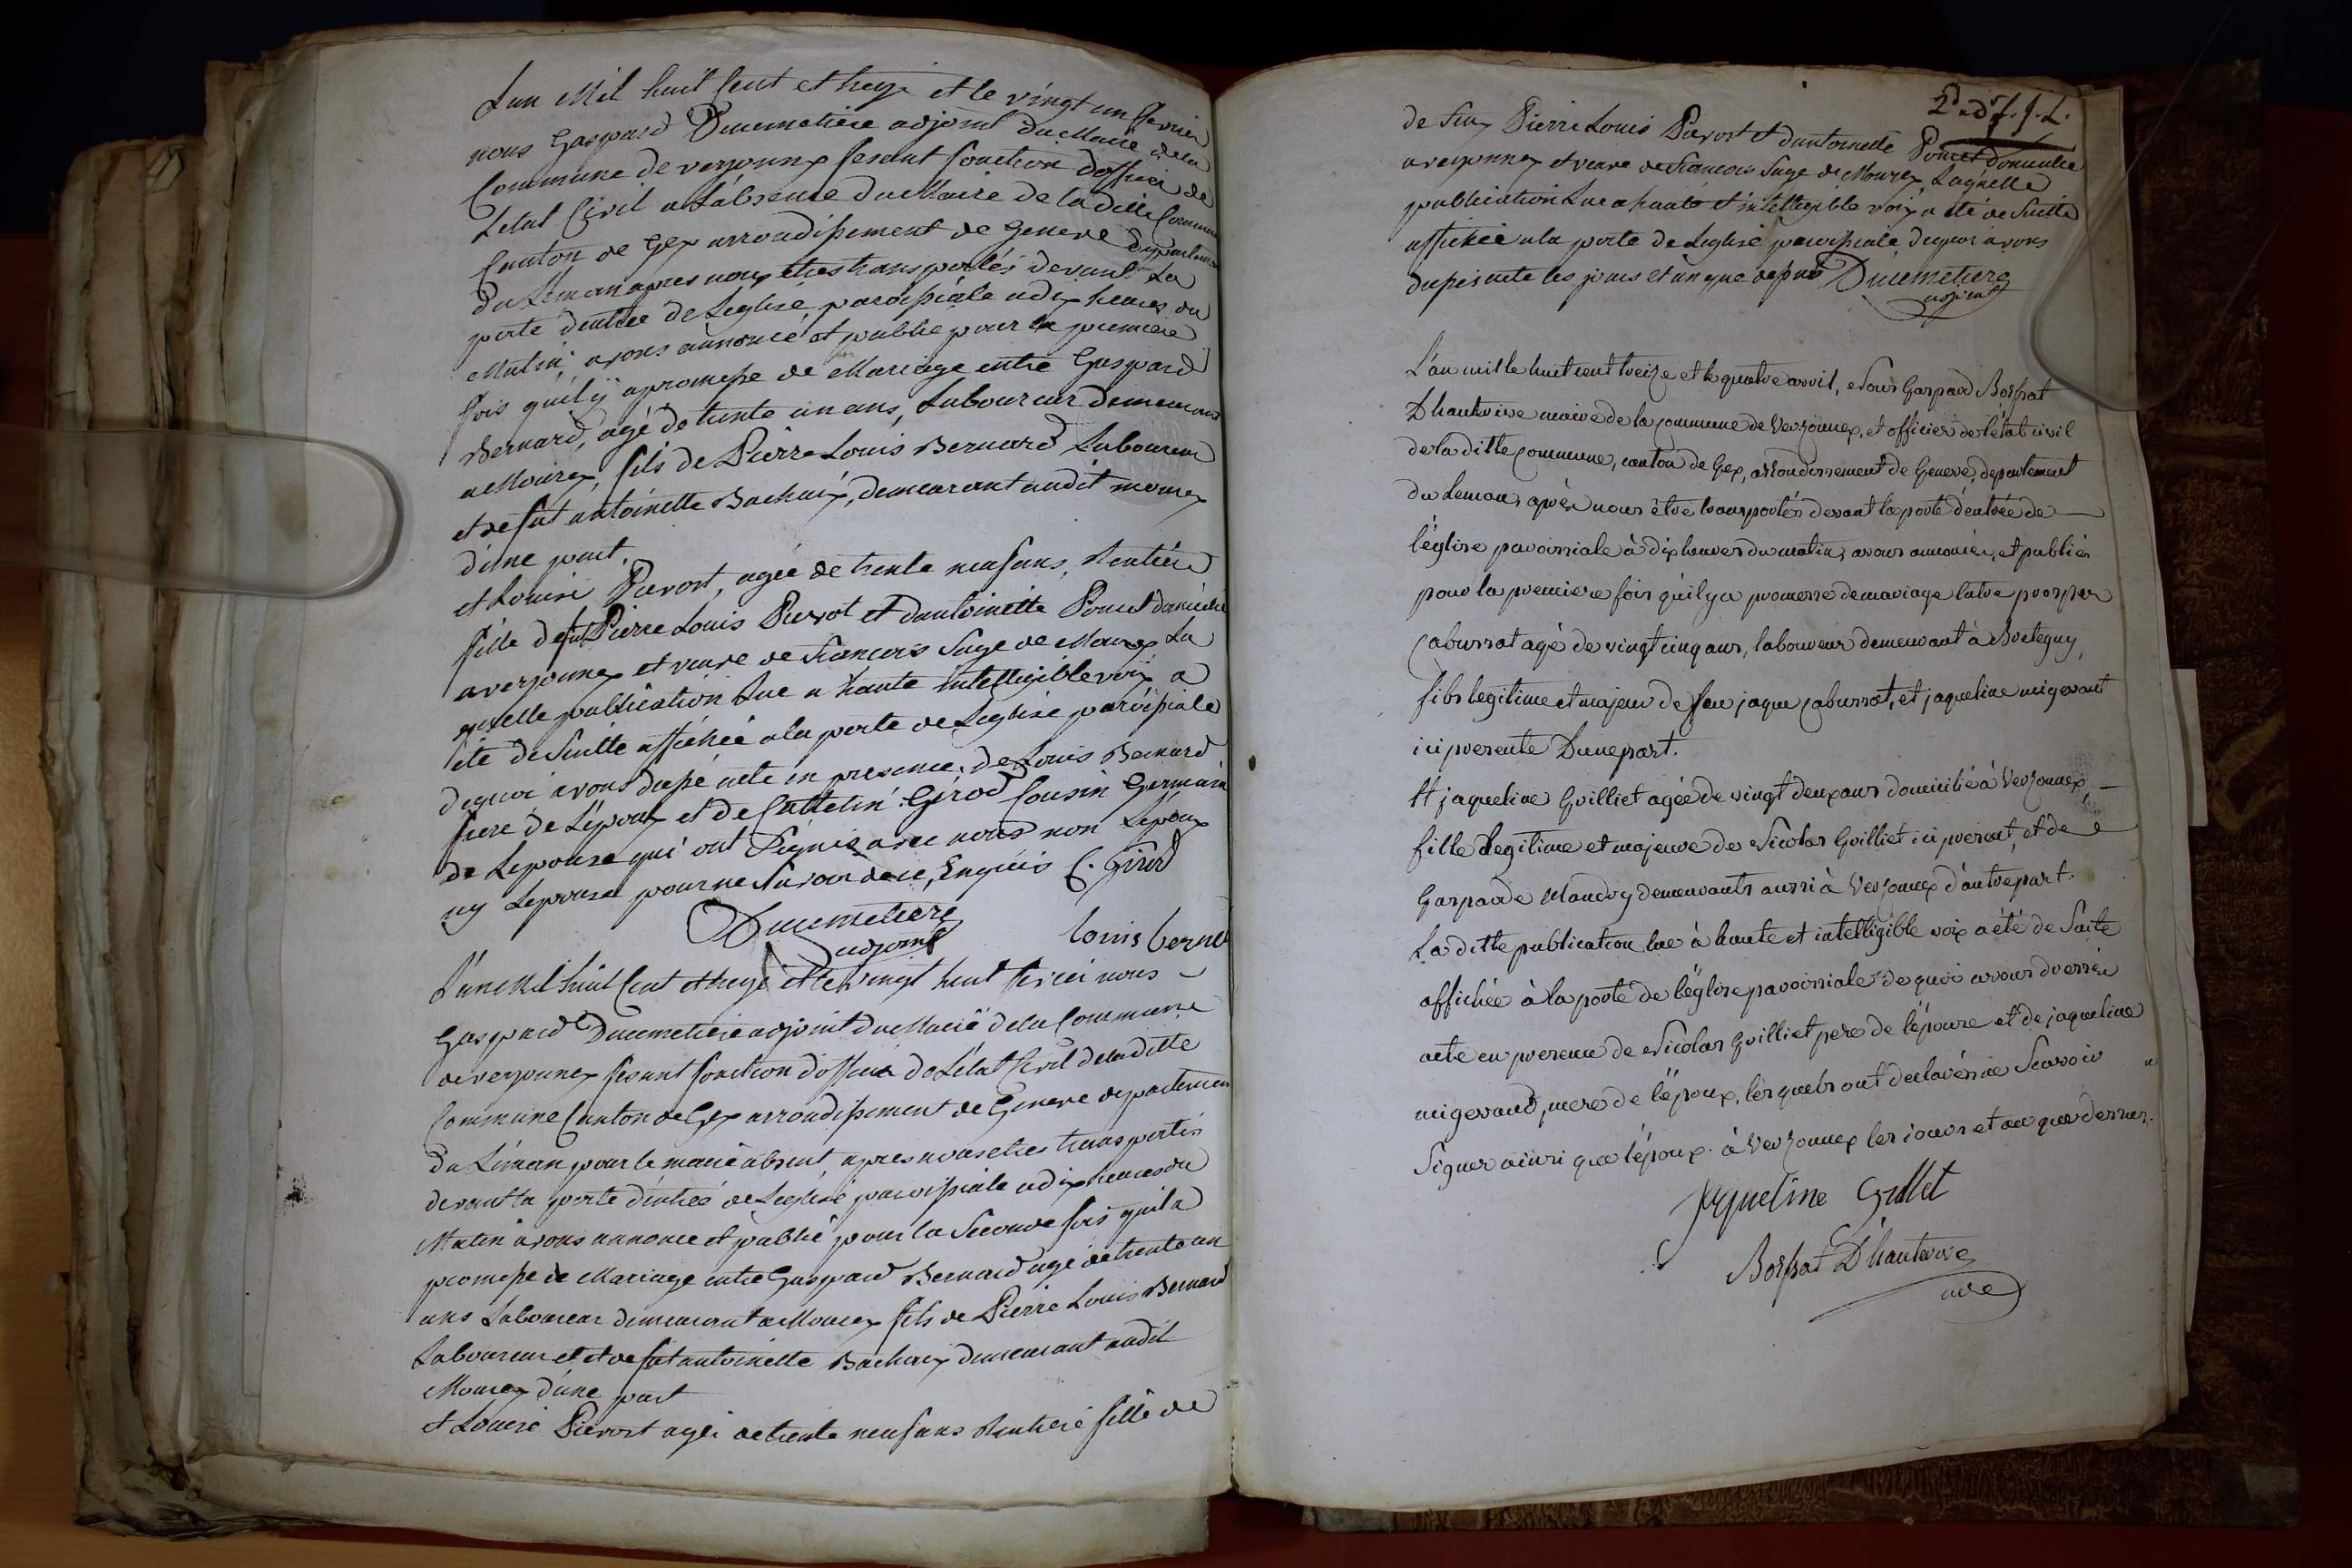 L'an Mil huit Cent et treize et le vingt un fevrier
nous Gaspard Ducimetiere adjoint du Maire de la
Commune de verzonnex fesant fonction d'officier de
Letat Civil a L'absence du Maire de la ditte Commune
Canton de Gex arrondissement de Geneve departement
du Leman apres nous etres transportés devant La
porte d'entrée de Leglise paroissiale a dix heures du
Matin, avons annoncé et publié pour la premiere
fois quil y a promesse de Mariage entre Gaspard
Bernard, agé de trente un ans, Laboureur demeurant
a Mourex, fils de Pierre Louis Bernard Laboureur
et de fut antoinette Bachux, demeurant audit mourex
d'une part,
et Louise Pievost, agée de trente neuf ans, Rentiere
fille de fut Pierre Louis Pievot et d'antoinette Poncet domiciliée
a verzonnex et veuve de Francois Suge de Mourex La
quelle publication Lue a haute intelligible voix a
été de Suitte affichée a la porte de Leglise paroissiale
de quoi avons dressé acte en presence, de Louis Bernard
frere de L'epoux et de Cattelin Girod Cousin Germain
de Lepouse qui ont Signés avec nous non Lepoux
ny Lepouse pour ne Savoir de ce, Enquis C. Girod
Ducimetiere
adjoint
louis berne
L'an Mil huit Cent et treize et le vingt huit fevrier nous
Gaspard Ducimetiere adjoint du Maire de la Commune
de verzonnex fesant fonction d'officier de L'état Civil de la ditte
Commune Canton de Gex arrondissement de Geneve departement
du Léman pour le maire absent, apres nous etres transportés
devant la porte d'entrée de Leglise paroissiale a dix heures du
Matin avons annoncé et publié pour la Seconde fois quil a
promesse de Mariage entre Gaspard Bernard agé de trente un
ans Laboureur demeurant a Mourex fils de Pierre Louis Bernard
Laboureur et et de fut antoinette Bachux demeurant audit
Mourex d'une part
et Louise Pievost agée de trente neuf ans Rentiere fille de
2d
de feux Pierre Louis Pievost et d'antoinette Poncet domiciliée
a verzonnex et veuve de Francois Suge de Mourex, Laquelle
publication Lue a haute et intelligible voix a été de Suitte
affichée a la porte de Leglise paroissiale de quoi avons
dupès acte les jours et an que dessus Ducimetiere
adjoint
L'an mille huit cent treize et le quatre avril, Nous Gaspard Bossrat
D'hauterive maire de la commune de Verzonnex, et officier de l'état civil
de la ditte commune, canton de Gex, arrondissement de Geneve, departement
du Leman, après nous être transportés devant la porte d'entrée de
l'église paroissiale à dix heures du matin, avons annoncée, et publiés
pour la premiere fois qu'il y a promesse de mariage Entre prosper
Cabussat agé de vingt cinq ans, laboureur demeurant à Bretegny,
fils legitime et majeur de feu jaque Cabussat, et jaqueline migerant
ici presente D'une part.
Et jaqueline Guilliet agée de vingt deux ans domiciliée à Verzonnex,
fille legitime et majeure de Nicolas Guilliet ici present, et de
Gasparde Mandry demeurants aussi à Verzonnex d'autre part.
La ditte publication lue à haute et intelligible voix a été de Suite
affichée à la porte de l'église paroissiale De quoi avons dressée
acte en presence de Nicolas Guilliet pere de l'épouse et de jaqueline
migerand, mere de l'époux, lesquels ont declarés ne Scavoir
Signer ainsi que l'époux. à Verzonnex les jours et an que dessus.
Jaqueline Gullet
Bossrat D'hauterive